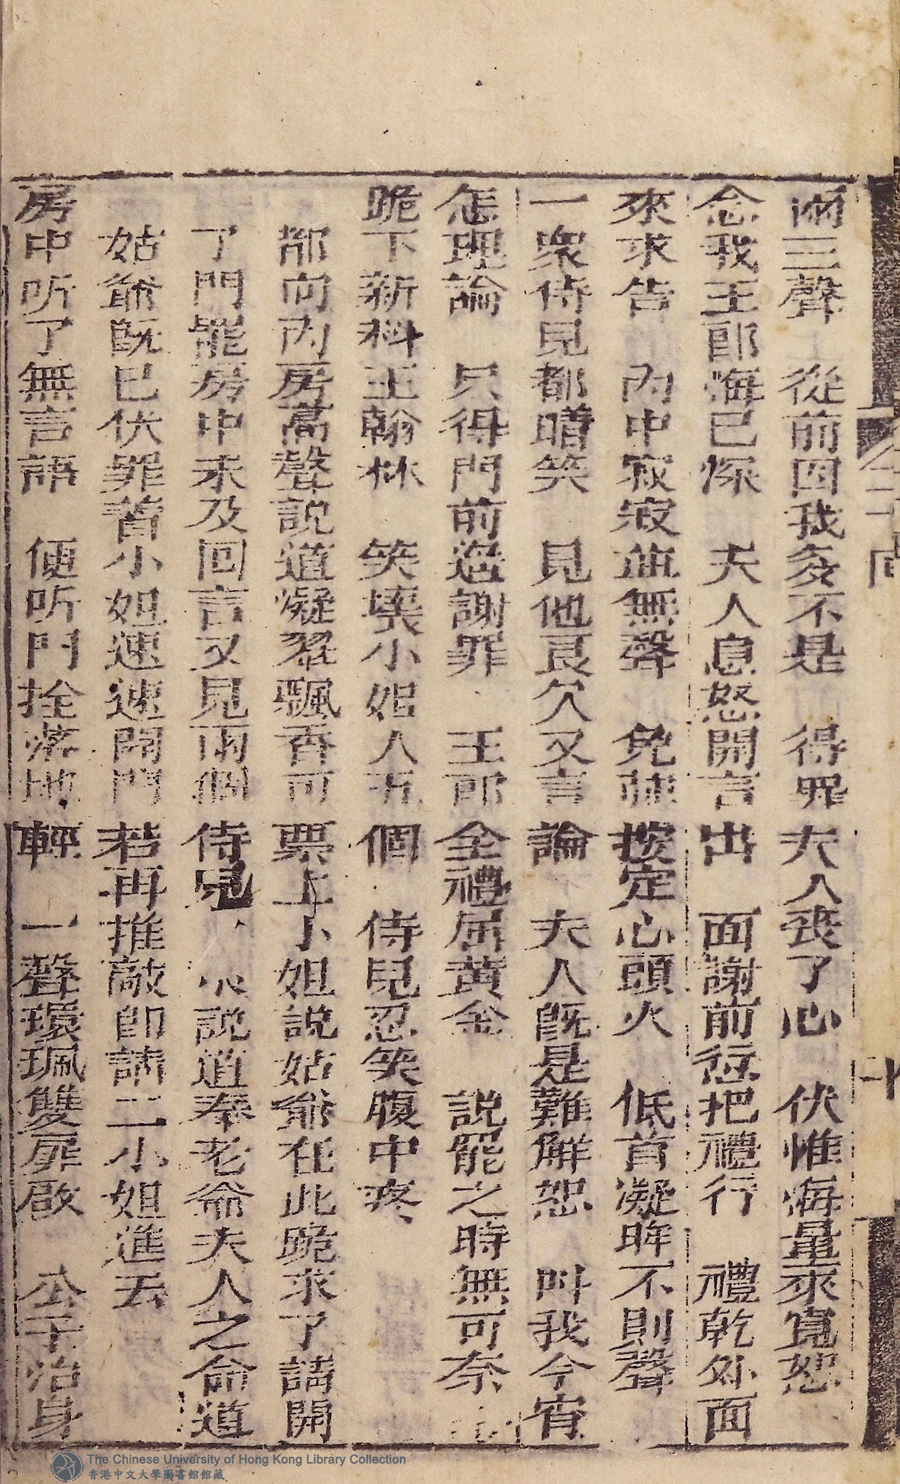 兩三聲 從前因我多不是 得罪夫人丧了心 伏惟海量來寬恕
念我王郎悔已深 夫人息怒開言出 面謝前愆把禮行 禮乾外面
來求告 內中寂寂並無聲 免強按定心頭火 低首凝眸不則聲
一衆侍見都暗笑 見他良久又言論 夫人既是難解恕 叫我今宵
怎理論 只得門前過謝罪 王郎全禮屈黄金 說罷之時無可奈
跪下新科王翰林 笑壞小姐人五個 侍兒忍笑腹中疼
都向內房高聲説道凝翠飄香可票上小姐説姑爺在此跪求了請開
了門罷房中未及回言又見兩個侍兒 説道奉老爺夫人之命道
姑爺既已伏罪著小姐速速開門若再推敲即請二小姐進去
房中听了無言語 便听門拴落地輕 一聲環珮雙扉啟 公子治身
十
The Chinese University of Hong Kong Library Collection
香港中文大學圖書館館藏